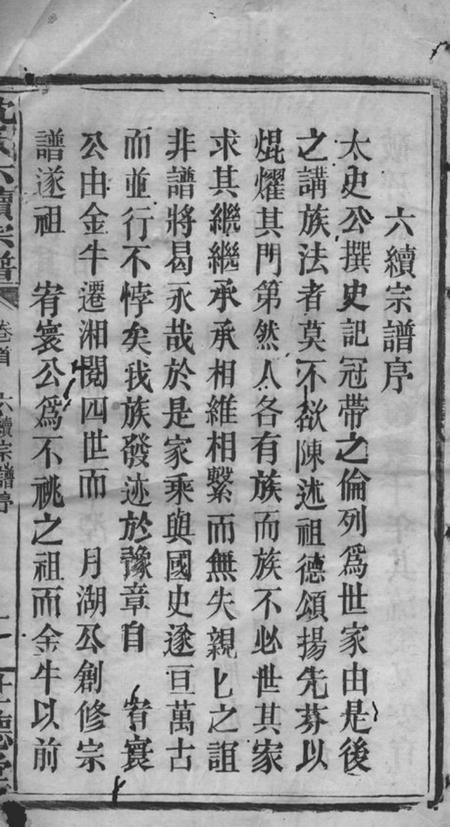 六續宗譜序
太史公撰史記冠帶之倫列爲世家由是後
之講族法者莫不欲陳述祖德頌揚先芬以
焜燿其門第然人各有族而族不必世其家
求其繼繼承承相維相繫而無失親匕之誼
非譜將曷永哉於是家乘與國史遂亘萬古
而並行不悖矣我族發迹於豫章自 宥寰
公由金牛遷湘閱四世而 月湖公創修宗
譜遂祖 宥寰公爲不祧之祖而金牛以前
六續宗譜 卷首 六續宗譜序